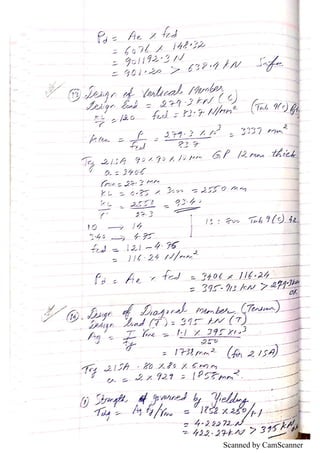 Pd = Ae x fcd
= 6076 x 148.32
= 901192.3 N
= 901.20 > 638.9 kN Safe
(13) Design of Vertical Member
Design load = 279.3 kN (C)
= 120 fcd = 83.7 N/mm² (Tab 9(c)
Area = P/fcd = 279.3 x 10³ / 83.7 = 3337 mm²
Try 2ISA 90x90x10mm GP 12mm thick
a = 3406
rmin = 27.3 mm
KL = 0.85 x 3000 = 2550 mm
KL/r = 2550/27.3 = 93.40
10 → 14
3.40 → 4.75
IS: 800 Tab 9(c)
fcd = 121 - 4.76
= 116.24 N/mm²
Pd = Ae x fcd = 3406 x 116.24
= 395.913 kN > 279.3kN
ok
(14) Design of Diagonal member (Tension)
Design load (T) = 395 kN (T)
Ag = T γmo / fy = 1.1 x 395 x10³ / 250
= 1738 mm² (for 2 ISA)
Try 2ISA - 80 x 80 x 6mm
a = 2 x 929 = 1858 mm²
(1) Strength governed by Yielding
Tdg = Ag fy/γmo = 1858 x 250/1.1
= 422.27 kN > 395 kN
Scanned by CamScanner